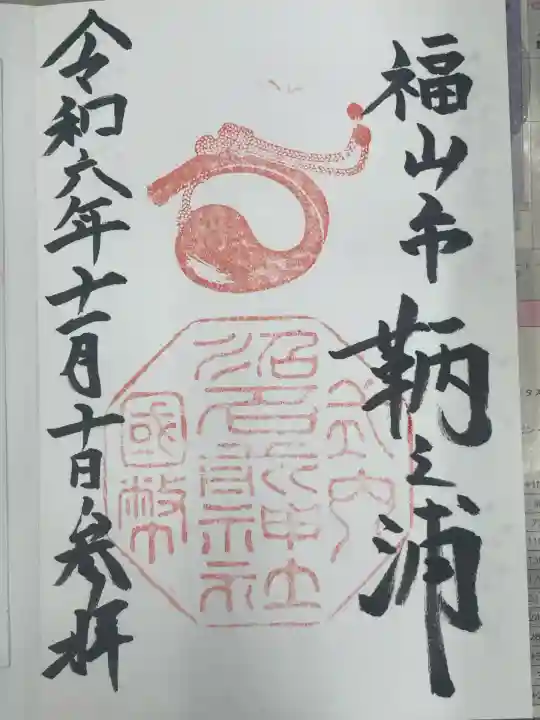 福山市鞆之浦
式内
沼名前神社
國幣
令和六年十一月十日参拝